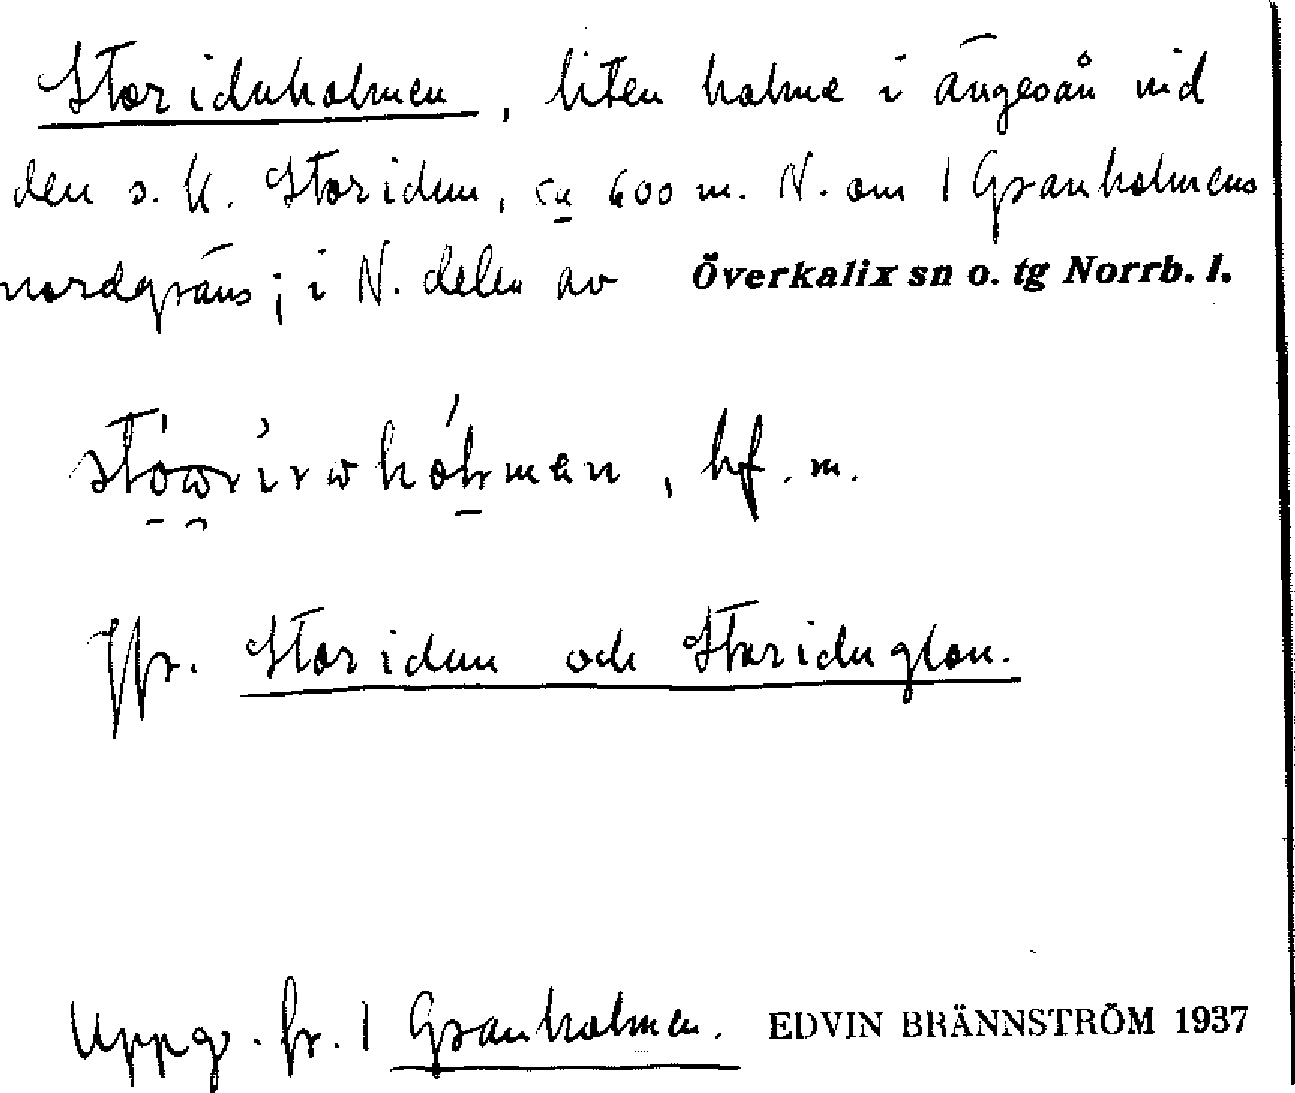 Storidnholmen, liten holme i Ängesån vid
den s. k. Storidun, ca 600 m. N. om 1 Granholmens
nordgräns; i N. delen av Överkalix sn o. tg Norrb. l.
, bf. m.
Jfr. Storidun och Storidnglon.
Uppg. fr. 1 Granholmen. EDVIN BRÄNNSTRÖM 1937